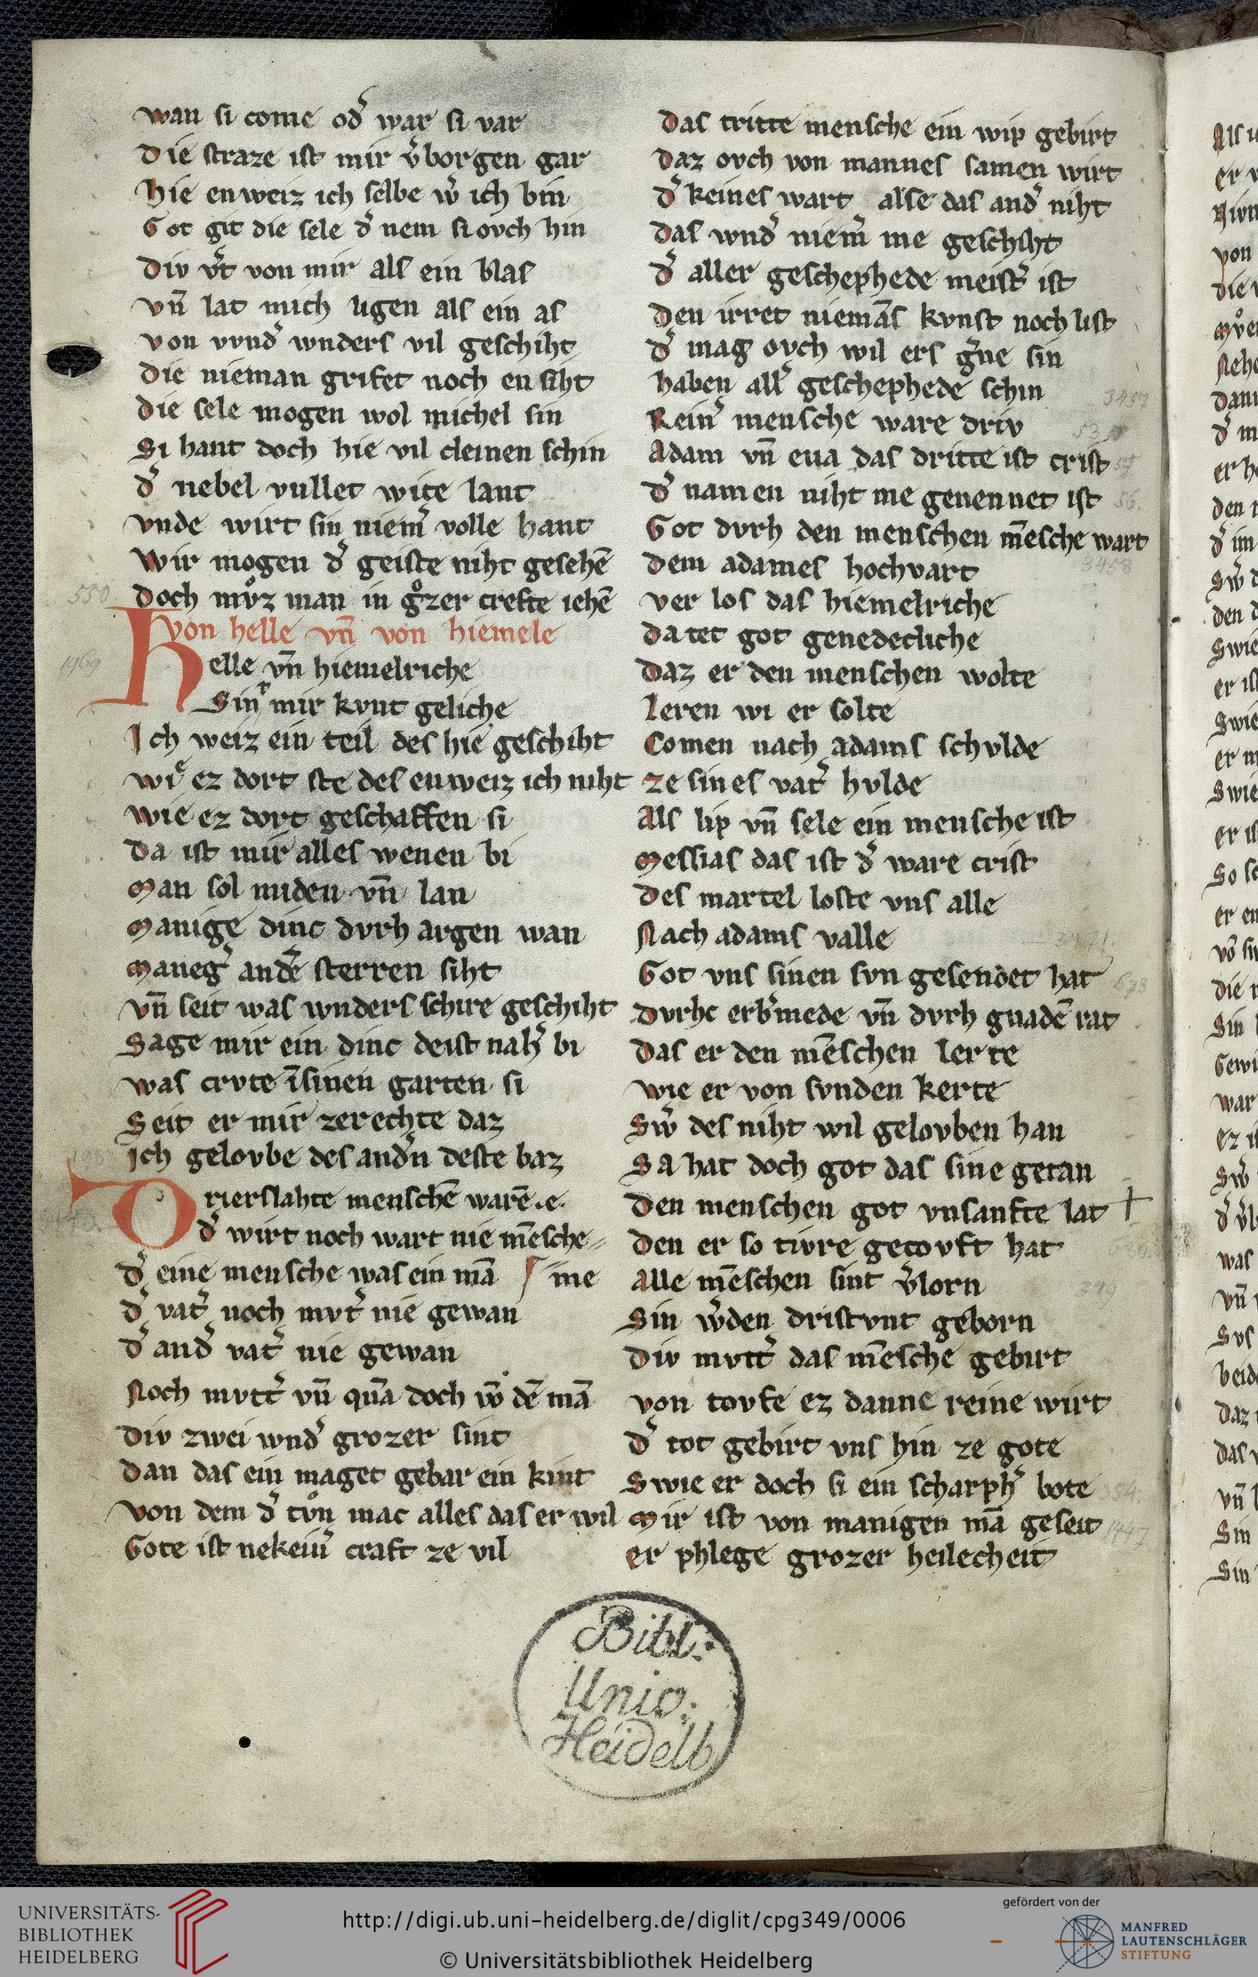 wan si come od͛ war si var
Die straze ist mir v͛borgen gar
Hie enweiz ich selbe w͛ ich bin
Got git die sele d͛ nem si ovch hin
Div v͛t von mir als ein blas
vn̄ lat mich ligen als ein as
von vvnd͛ wnders vil geschiht
Die nieman grifet noch en siht
Die sele mogen wol michel sin
Si hant doch hie vil cleinen schin
d͛ nebel vullet wite lant
vnde wirt sin niem͛ volle hant
Wir mogen d͛ geiste niht gesehē
Doch mvͦz man in gͦzer crefte iehē
von helle vn̄ von hiemele
Helle vn̄ hiemelriche
Sin mir kvnt geliche
Ich weiz ein teil des hie geschiht
wie ez dort ste des enweiz ich niht
wie ez dort geschaffen si
Da ist mir alles wenen bi
Man sol miden vn̄ lan
Manige dinc dvrh argen wan
Maneg͛ andē sterren siht
vn̄ seit was wnders schire geschiht
Sage mir ein dinc deist nah͛ bi
was crvte īsinen garten si
Seit er mir zerechte daz
Ich gelovbe des and͛n deste baz
Drierslahte menschē warē .e.
d͛ wirt noch wart nie mēsche
d͛ eine mensche was ein mā me
d͛ vat͛ noch mvt͛ nie gewan
d͛ and͛ vat͛ nie gewan
Noch mvtt͛ vn̄ qūa doch vͦ dē mā
Div zwei wnd͛ grozer sint
Dan das ein maget gebar ein kint
Von dem d͛ tvͦn mac alles das er wil
Gote ist nekein͛ craft ze vil
Das tritte mensche ein wip gebirt
daz ovch von mannes samen wirt
d͛ keines wart alse das and͛ niht
Das wnd͛ niem͛ me geschiht
d͛ aller geschephede meist͛ ist
Den irret niemās kvnst noch list
d͛ mag ovch wil ers g͛ne sin
haben all͛ geschephede schin
Rein͛ mensche ware driv
Adam vn̄ eua das dritte ist crist
d͛ namen niht me genennet ist
Got dvrh den menschen mēsche wart
Dem adames hochvart
ver los das hiemelriche
Da tet got genedecliche
Daz er den menschen wolte
Leren wi er solte
Comen nach adams schvlde
ze sines vat͛ hvlde
Als lip vn̄ sele ein mensche ist
Messias das ist d͛ ware crist
Des martel loste vns alle
Nach adams valle
Got vns sinen svn gesendet hat
dvrhc erb͛mede vn̄ dvrh gnadē rat
Das er den mēschen lerte
wie er von svnden kerte
Sw͛ des niht wil gelovben han
Sa hat doch got das sine getan
Den menschen got vnsanfte lat
Den er so tivre gecovft hat
Alle mēschen sint v͛lorn
Sin w͛den dristvnt geborn
Div mvtt͛ das mēsche gebirt
von tovfe ez danne reine wirt
d͛ tot gebirt vns hin ze gote
Swie er doch si ein scharph͛ bote
Mir ist von manigen mā geseit
er phlege grozer heilecheit
Bibl:
Univ:
Heidelb
UNIVERSITÄTS-
BIBLIOTHEK
HEIDELBERG
http://digi.ub.uni-heidelberg.de/diglit/cpg349/0006
© Universitätsbibliothek Heidelberg
gefördert von der
MANFRED
LAUTENSCHLÄGER
STIFTUNG